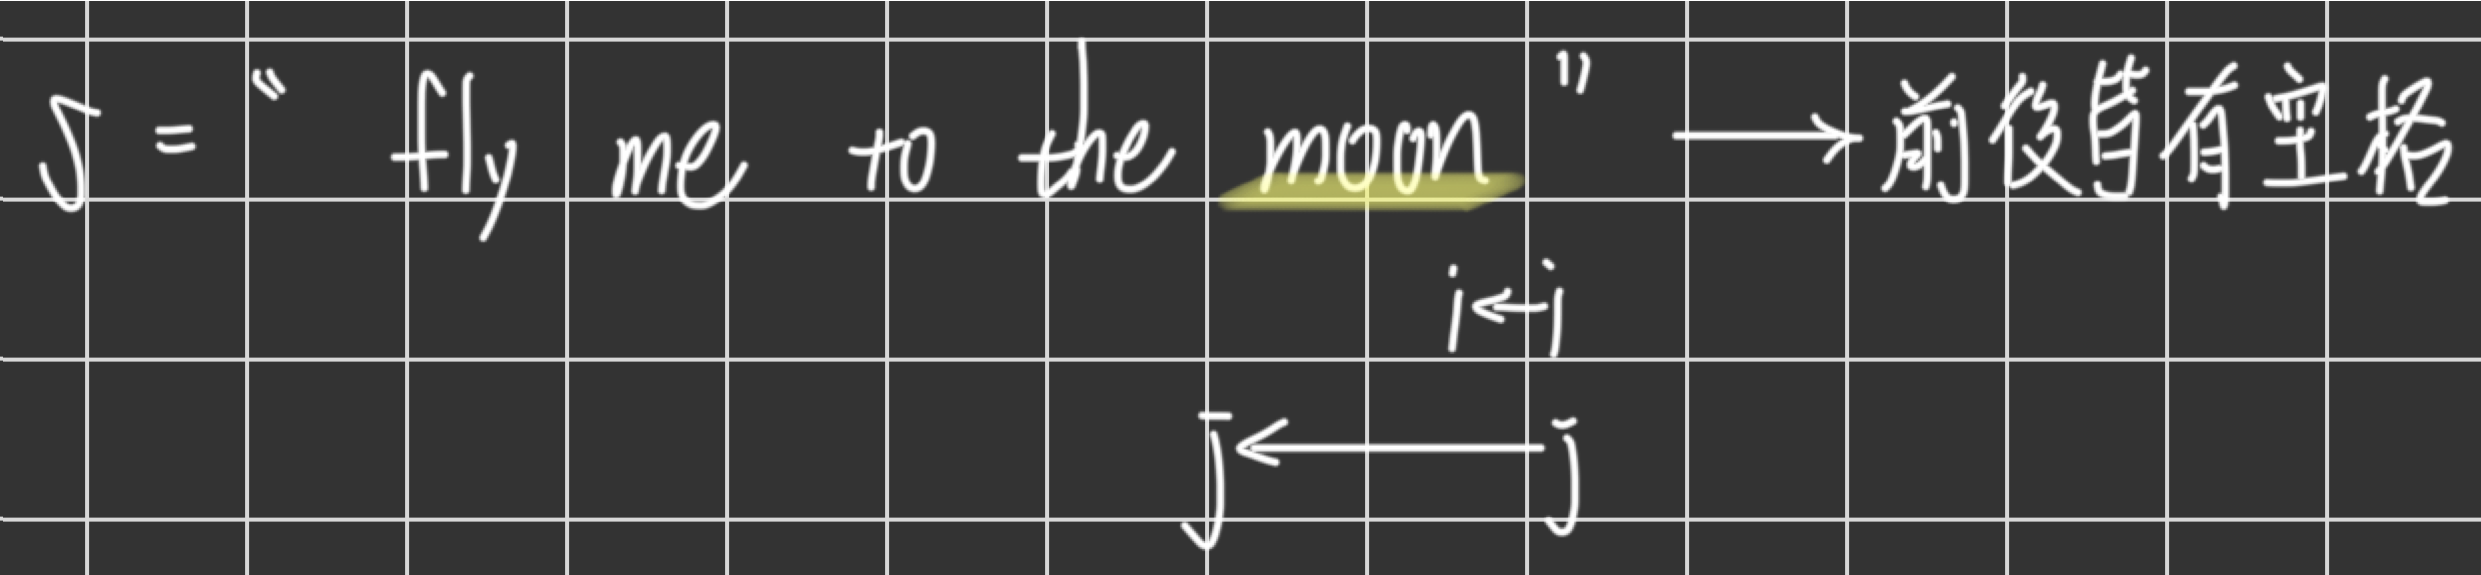 S = " fly me to the moon " → 前後皆有空格
i ← i
j ← j